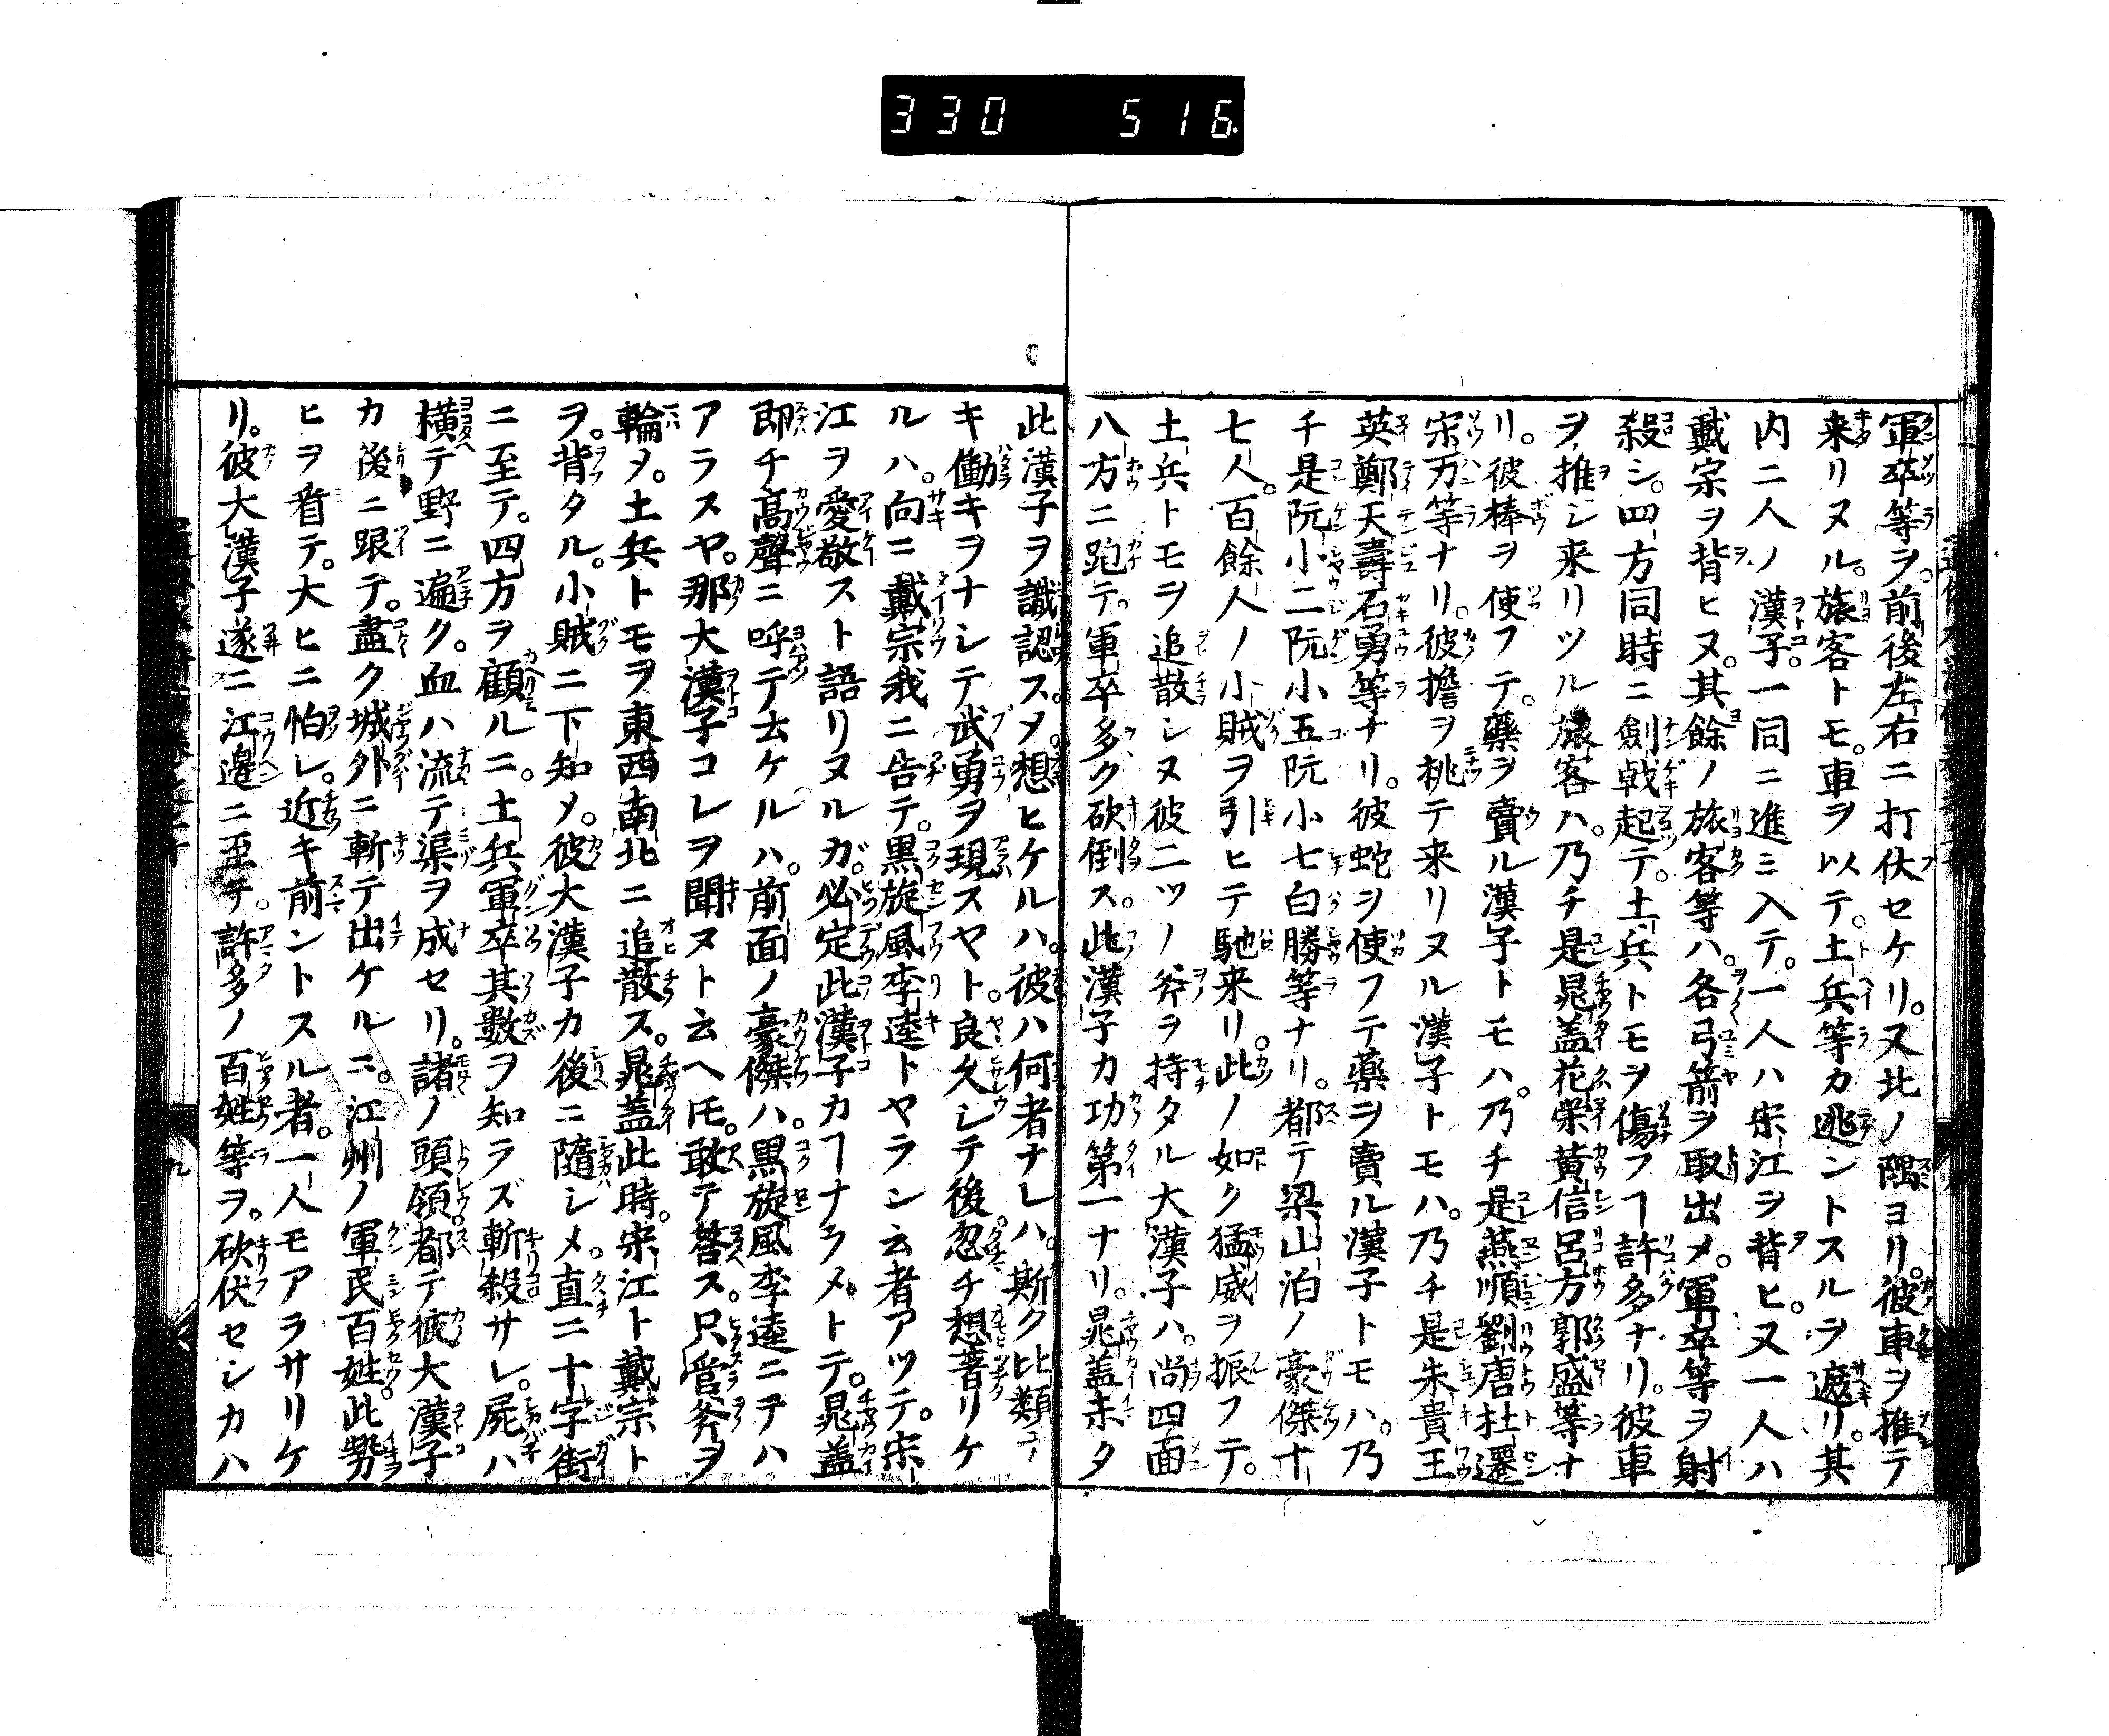 330 516
軍卒等ヲ。前後左右ニ打伏セケリ。又北ノ隅ヨリ。彼車ヲ推テ
来リヌル。旅客トモ。車ヲ以テ。土兵等カ逃ントスルヲ遮リ。其
内ニ人ノ漢子。一同ニ進ミ入テ。一人ハ宋江ヲ背ヒ。又一人ハ
戴宗ヲ背ヒヌ。其餘ノ旅客等ハ。各弓箭ヲ取出メ。軍卒等ヲ射
殺シ。四方同時ニ劍戟起テ。土兵トモヲ傷フヿ許多ナリ。彼車
ヲ推シ来リツル旅客ハ。乃チ是晁盖花栄黄信呂方郭盛等ナ
リ。彼棒ヲ使フテ。藥ヲ賣ル漢子トモハ。乃チ是燕順劉唐杜遷
宋万等ナリ。彼擔ヲ挑テ来リヌル漢子トモハ。乃チ是朱貴王
英鄭天壽石勇等ナリ。彼蛇ヲ使フテ薬ヲ賣ル漢子トモハ。乃
チ是阮小二阮小五阮小七白勝等ナリ。都テ梁山泊ノ豪傑十
七人。百餘人ノ小賊ヲ引ヒテ馳来リ。此ノ如ク猛威ヲ振フテ。
土兵トモヲ追散シヌ彼二ツノ斧ヲ持タル大漢子ハ。尚四面
八方ニ跑テ。軍卒多ク砍倒ス。此漢子カ功第一ナリ。晁盖未タ
此漢子ヲ識認ス。〆想ヒケルハ。彼ハ何者ナレハ。斯ク比類ナ
キ働キヲナシテ武勇ヲ現スヤト。良久シテ後。忽チ想著リケ
ルハ。向ニ戴宗我ニ告テ。黒旋風李逵トヤラン云者アツテ。宋
江ヲ愛敬スト語リヌルガ。必定此漢子カヿナラメトテ。晁盖
即チ高聲ニ呼テ云ケルハ。前面ノ豪傑ハ。黒旋風李逵ニテハ
アラスヤ。那大漢子コレヲ聞ヌト云ヘ𪜈。敢テ答ス。只管斧ヲ
輪メ。土兵トモヲ東西南北ニ追散ス。晁盖此時。宋江ト戴宗ト
ヲ。背タル。小賊ニ下知メ。彼大漢子カ後ニ隨シメ。直ニ十字街
ニ至テ。四方ヲ顧ルニ。土兵軍卒其数ヲ知ラズ斬殺サレ。屍ハ
横テ野ニ遍ク。血ハ流テ渠ヲ成セリ。諸ノ頭領。都テ彼大漢子
カ後ニ跟テ。盡ク城外ニ斬テ出ケルニ。江州ノ軍民百姓。此勢
ヒヲ看テ。大ヒニ怕レ。近キ前ントスル者。一人モアラサリケ
リ。彼大漢子遂ニ江邉ニ至テ。許多ノ百姓等ヲ。砍伏セシカハ
九